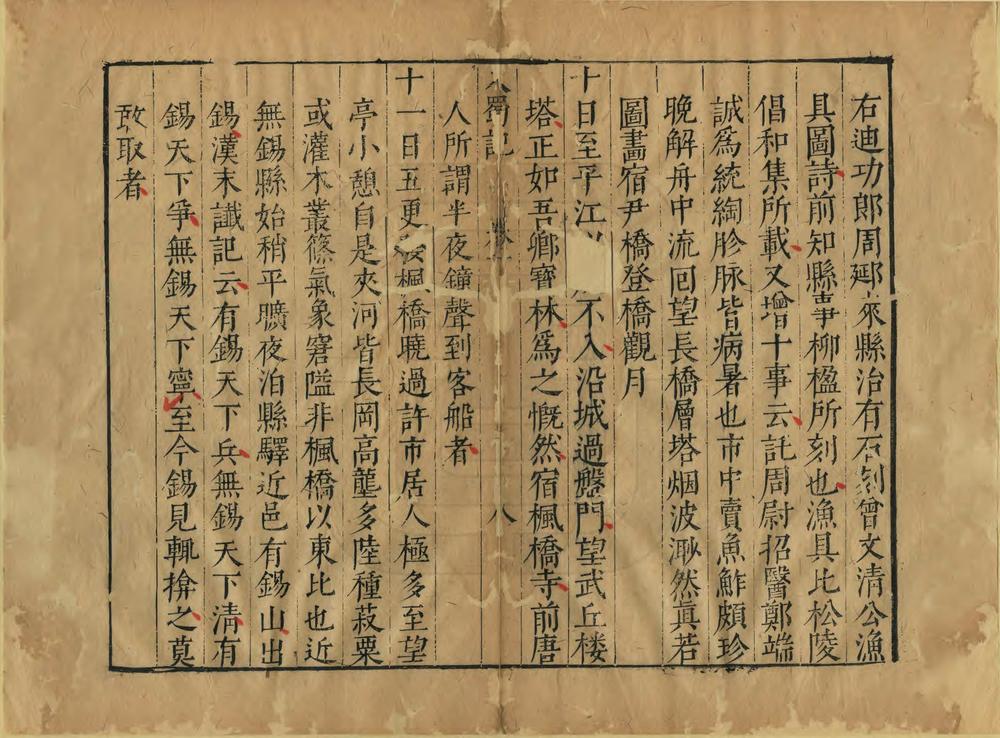 右迪功郎周郔來縣治有石刻曾文清公漁
具圖詩前知縣事柳楹所刻也漁具比松陵
倡和集所載又增十事云託周尉招醫鄭端
誠爲統綯胗脉皆病暑也市中賣魚鮓頗珍
晚解舟中流回望長橋層塔烟波渺然眞若
圖畫宿尹橋登橋觀月
十日至平江 不入沿城過盤門望武丘楼
塔正如吾鄉寳林爲之慨然宿楓橋寺前唐
入蜀記 卷一 八
人所謂半夜鐘聲到客船者
十一日五更 楓橋曉過許市居人極多至望
亭小憇自是夾河皆長岡高壟多陸種菽粟
或灌木叢篠氣象窘隘非楓橋以東比也近
無錫縣始稍平曠夜泊縣驛近邑有錫山出
錫漢末讖記云有錫天下兵無錫天下清有
錫天下爭無錫天下寧至今錫見輒揜之莫
敢取者